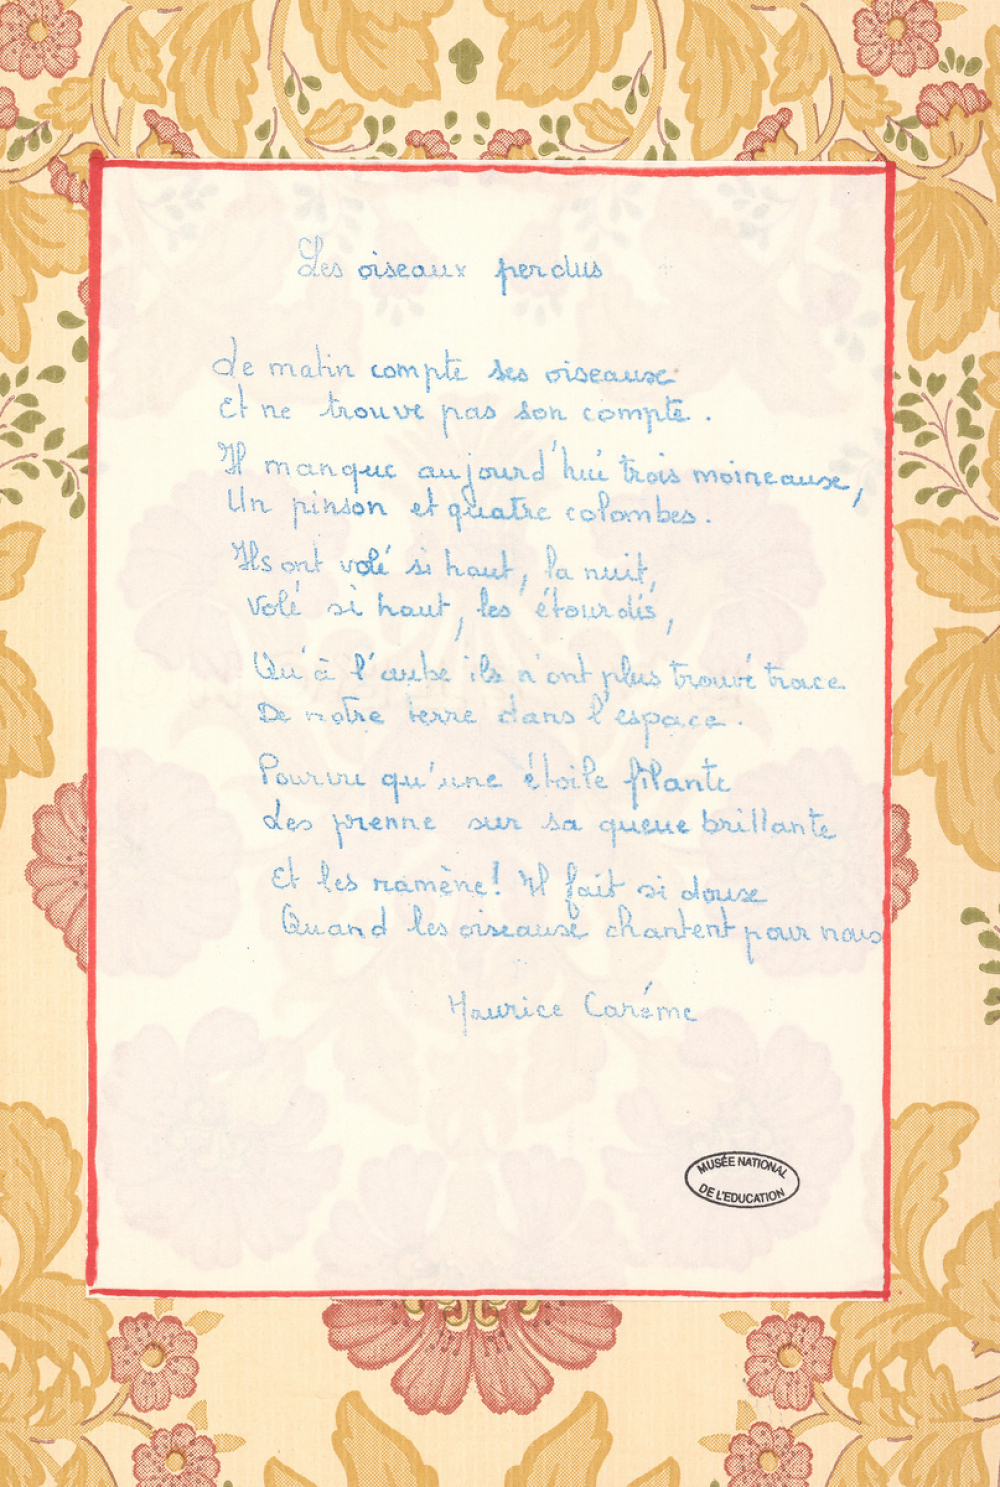 Les oiseaux perdus
Le matin compte ses oiseaux
Et ne trouve pas son compte.
Il manque aujourd'hui trois moineaux,
Un pinson et quatre colombes.
Ils ont volé si haut, la nuit,
Volé si haut, les étourdis,
Qu'à l'aube ils n'ont plus trouvé trace
De notre terre dans l'espace.
Pourvu qu'une étoile filante
Les prenne sur sa queue brillante
Et les ramène! Il fait si doux
Quand les oiseaux chantent pour nous
Maurice Carême
MUSÉE NATIONAL
DE L'EDUCATION